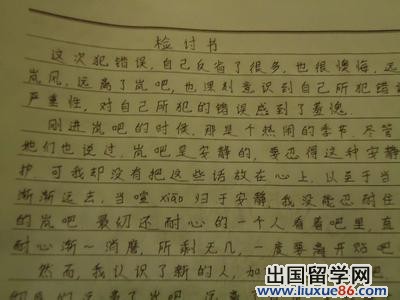 检讨书
这次犯错误,自己反省了很多,也很懊悔,远
岚风,远离了岚吧,也深刻意识到自己所犯错误
严重性,对自己所犯的错误感到了羞愧
刚进岚吧的时候,那是个热闹的季节.尽管
她们也说过,岚吧是安静的,要忍得这种安静
护,可我却没有把这些话放在心上,以至于当
渐渐远去,当喧xiāo归于安静,我没能忍耐住
的岚吧.最初还耐心的一个人看着吧里,直
耐心渐一消磨,所剩无几,一度要离开岚吧
然而,我认识了新的人,加
的离了岚吧,远离
出国留学网
www.liuxue86.com